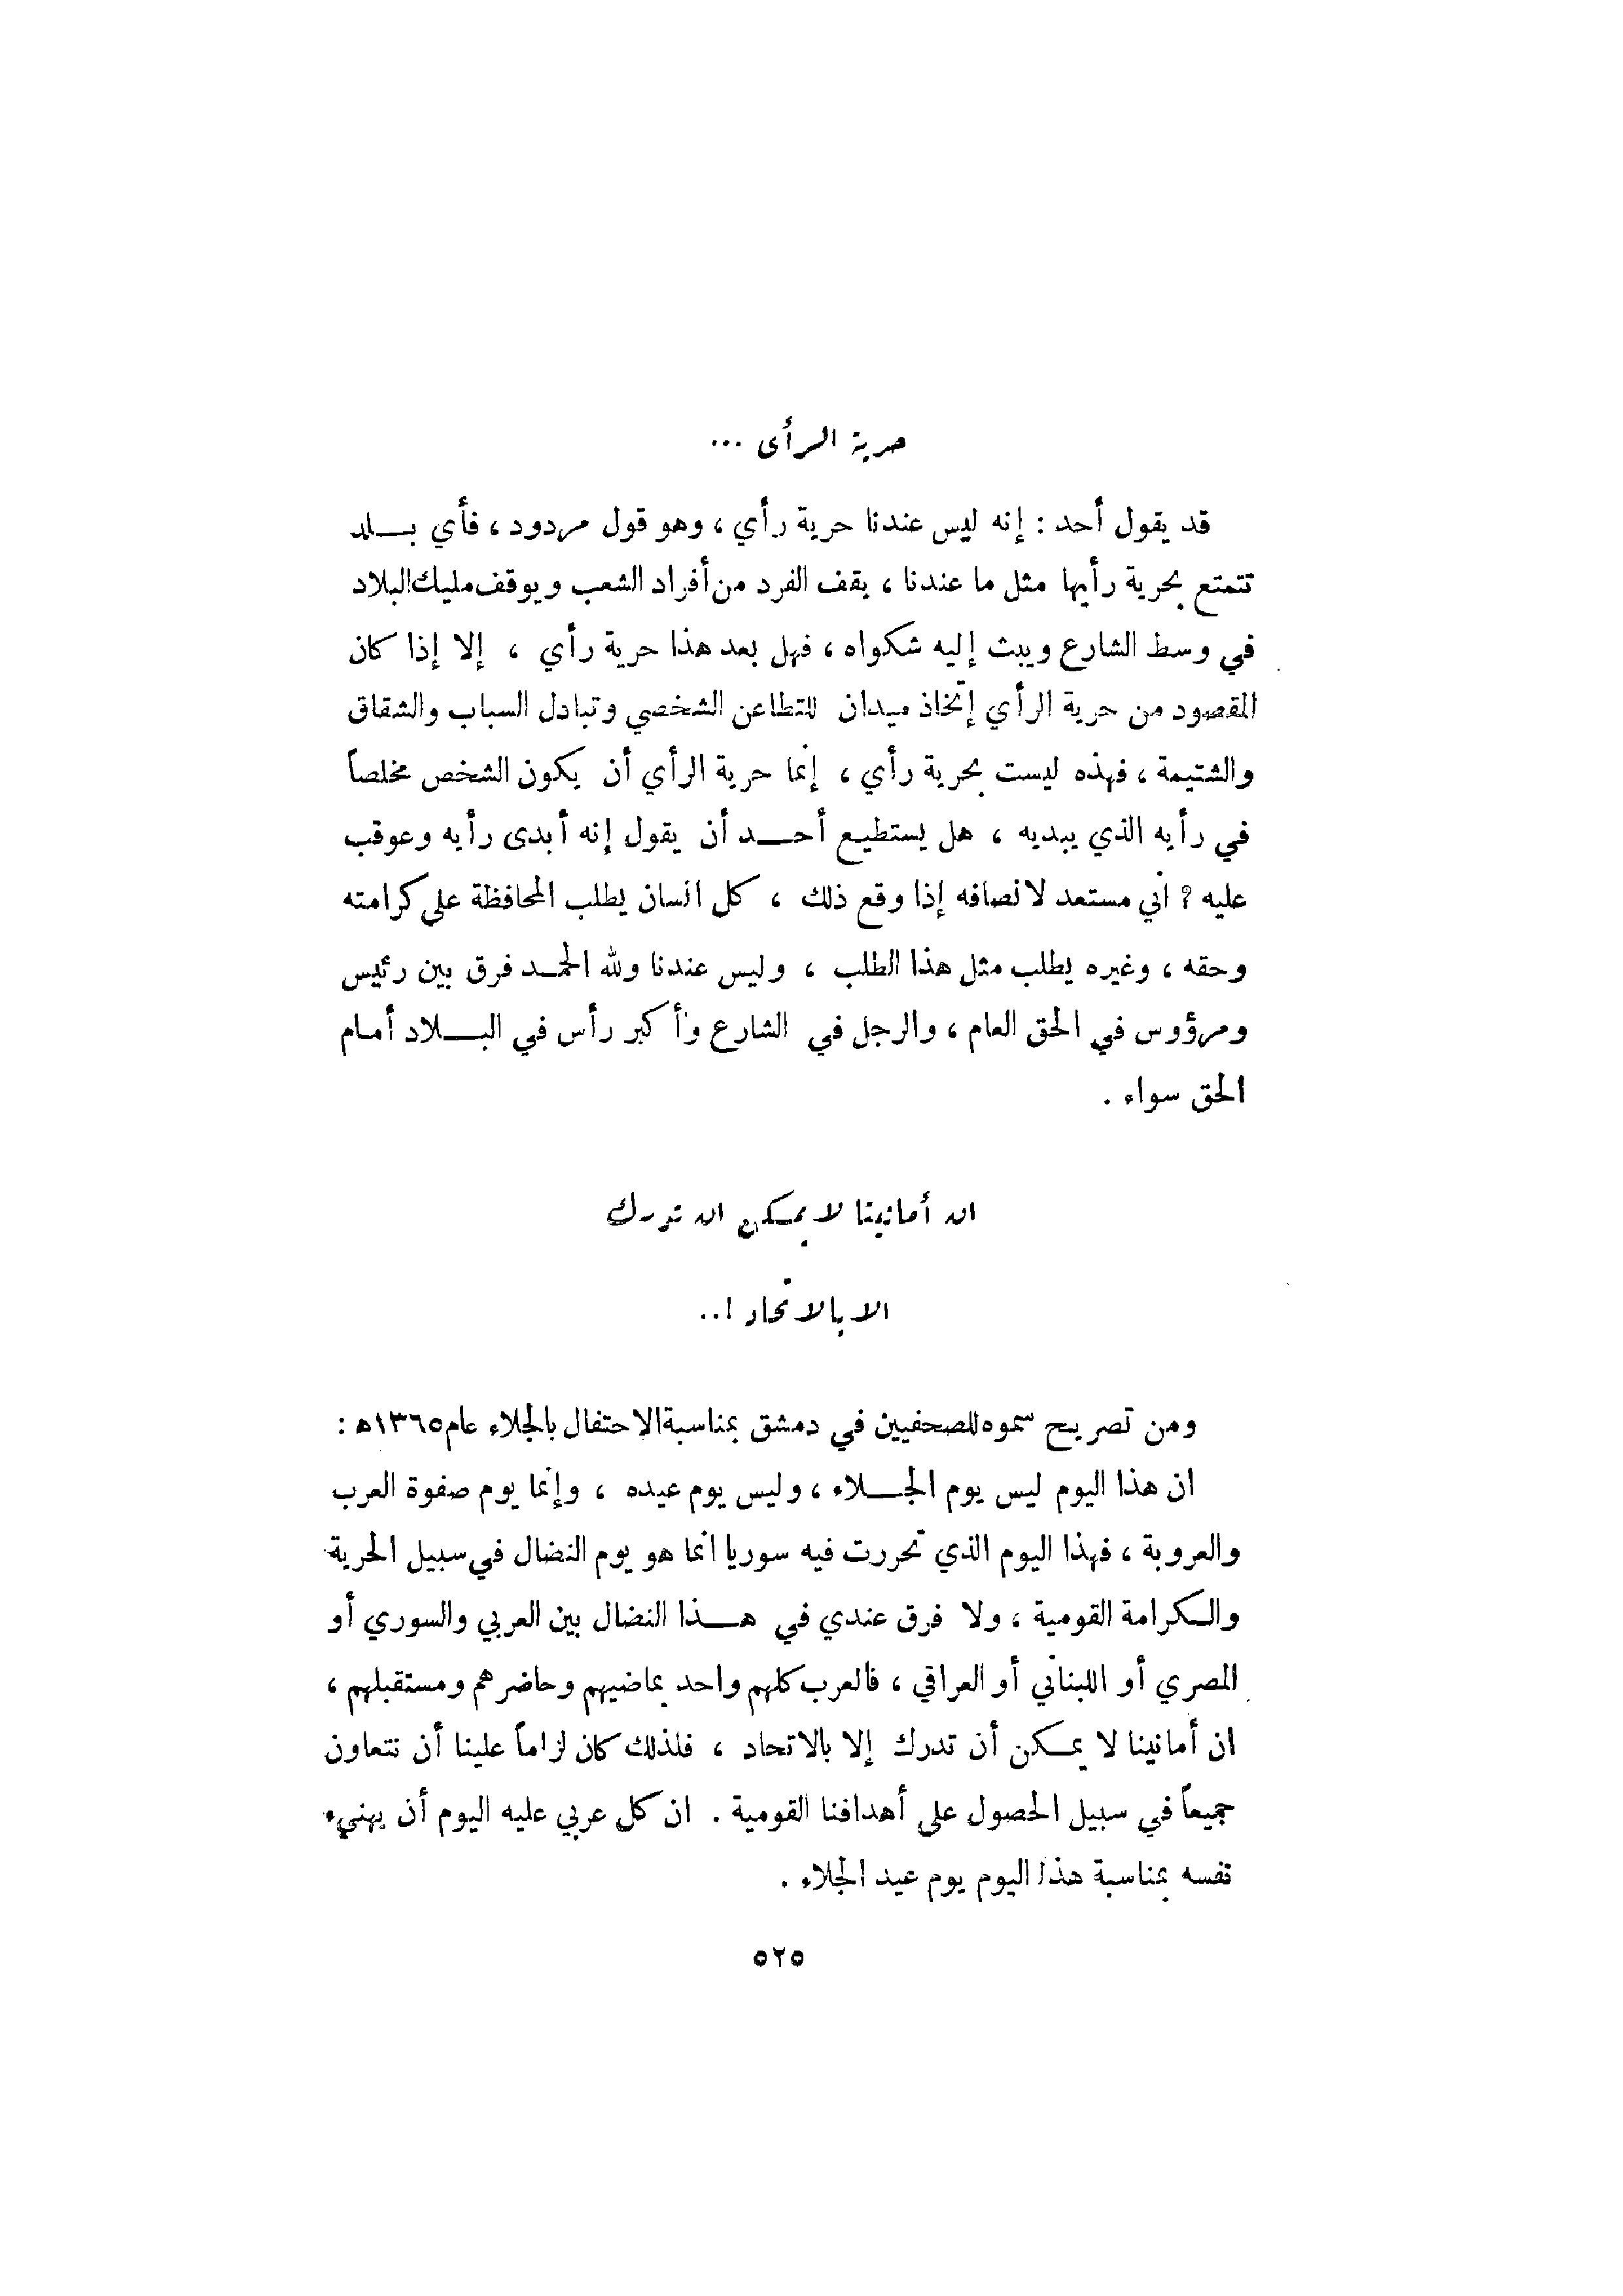 حرية الرأى ...
قد يقول أحد : إنه ليس عندنا حرية رأي ، وهو قول مردود ، فأي بلد
تتمتع بحرية رأيها مثل ما عندنا ، يقف الفرد من أفراد الشعب ويوقف مليك البلاد
في وسط الشارع ويبث إليه شكواه ، فهل بعد هذا حرية رأي ، إلا إذا كان
المقصود من حرية الرأي إتخاذ ميدان للتطاعن الشخصي وتبادل السباب والشقاق
والشتيمة ، فهذه ليست بحرية رأي ، إنما حرية الرأي أن يكون الشخص مخلصاً
في رأيه الذي يبديه ، هل يستطيع أحد أن يقول إنه أبدى رأيه وعوقب
عليه ؟ اني مستعد لانصافه إذا وقع ذلك ، كل انسان يطلب المحافظة على كرامته
وحقه ، وغيره يطلب مثل هذا الطلب ، وليس عندنا ولله الحمد فرق بين رئيس
ومرؤوس في الحق العام ، والرجل في الشارع وأكبر رأس في البلاد أمام
الحق سواء .
ان أمانينا لا يمكن ان تدرك
الا بالاتحاد !..
ومن تصريح سموه للصحفيين في دمشق بمناسبة الاحتفال بالجلاء عام ١٣٦٥ه :
ان هذا اليوم ليس يوم الجلاء ، وليس يوم عيده ، وإنما يوم صفوة العرب
والعروبة ، فهذا اليوم الذي تحررت فيه سوريا انما هو يوم النضال في سبيل الحرية
والكرامة القومية ، ولا فرق عندي في هذا النضال بين العربي والسوري أو
المصري أو اللبناني أو العراقي ، فالعرب كلهم واحد بماضيهم وحاضرهم ومستقبلهم ،
ان أمانينا لا يمكن أن تدرك إلا بالاتحاد ، فلذلك كان لزاماً علينا أن نتعاون
جميعاً في سبيل الحصول على أهدافنا القومية . ان كل عربي عليه اليوم أن يهنيء
نفسه بمناسبة هذا اليوم يوم عيد الجلاء .
٥٢٥